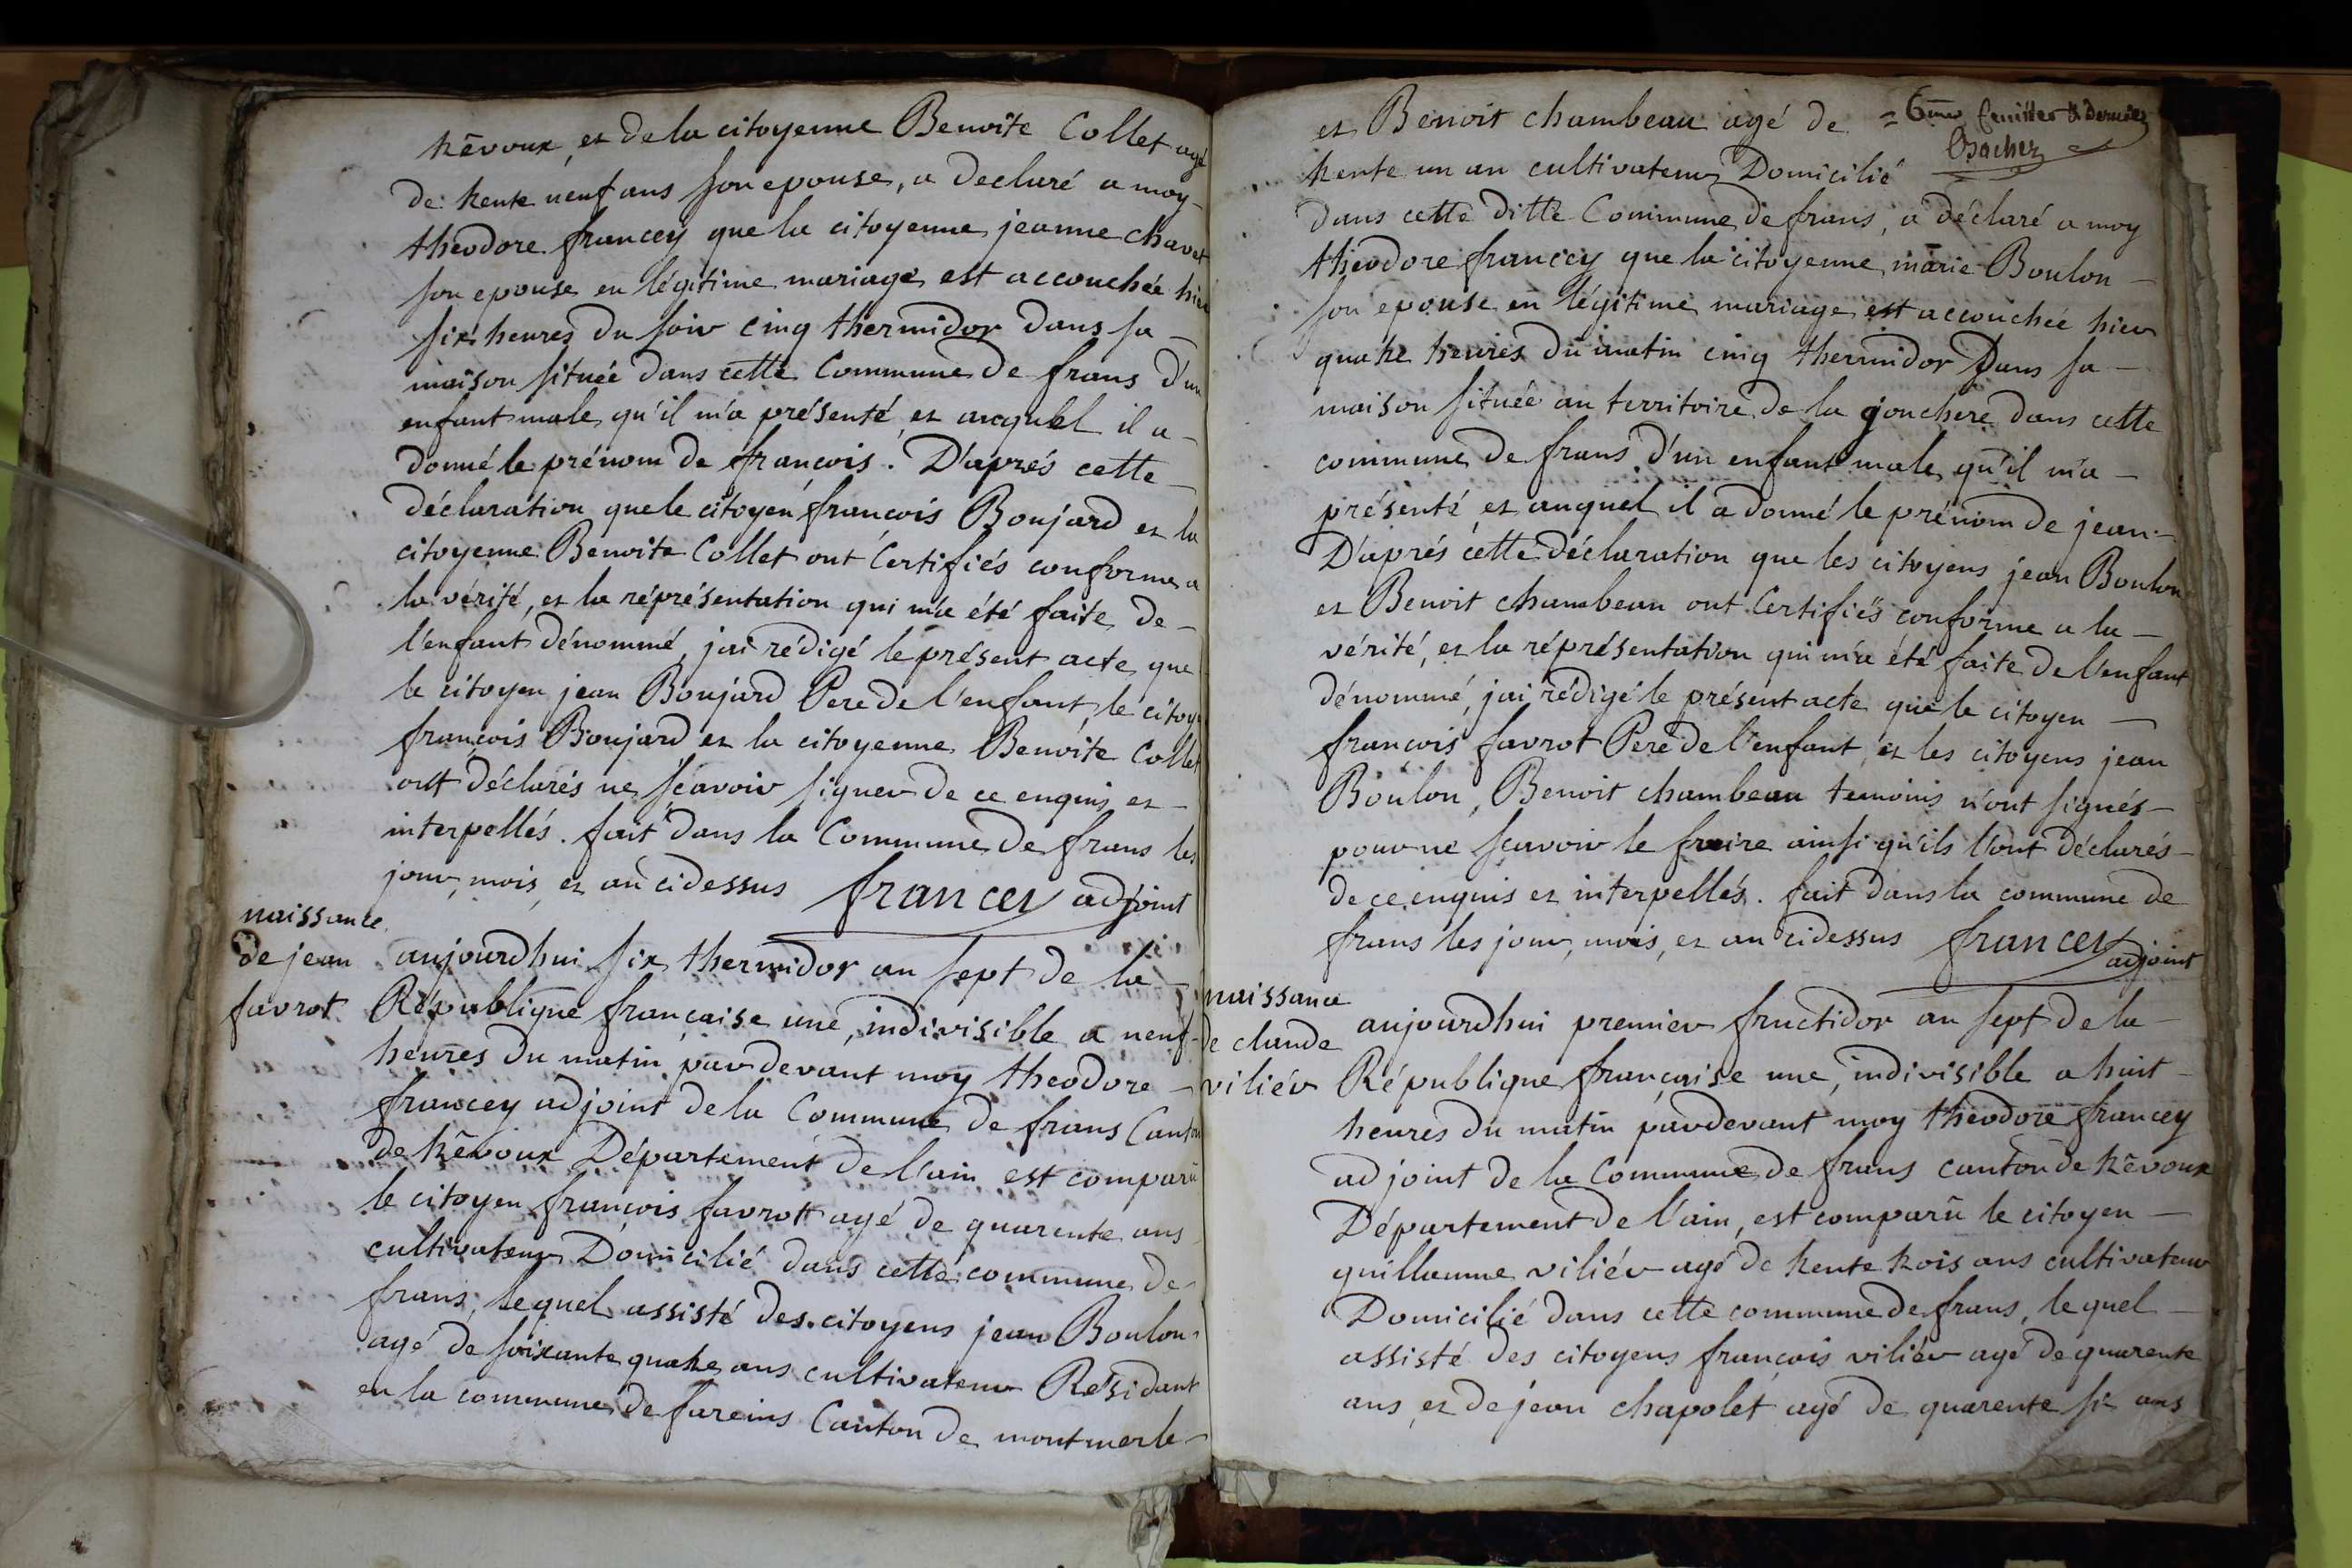 trēvoux, et de la citoyenne Benoite Collet agé
de trente neuf ans son epouse, a declaré a moy
théodore francey que la citoyenne jeanne chavet
son epouse en légitime mariage est accouchée hier
six heures du soir cinq thermidor dans sa
maison située dans cette Commune de frans d'un
enfant male qu'il m'a présenté, et auquel il a
donné le prénom de françois. D'aprés cette
déclaration que le citoyen françois Boujard et la
citoyenne Benoite Collet ont Certifiés conforme a
la vérité, et la réprésentation qui m'a été faite de
l'enfant dénommé, jai rédigé le présent acte que
le citoyen jean Boujard Pere de l'enfant, le citoyen
françois Boujard et la citoyenne Benoite Collet
ont déclarés ne sçavoir signer de ce enquis et
interpellés. fait dans la Commune de frans les
jour, mois, et an cidessus francey adjoint
naissance
de jean
favrot
aujourdhui six thermidor an sept de la
République française une, indivisible a neuf
heures du matin pardevant moy théodore
francey adjoint de la Commune de frans Canton
de trēvoux Département de l'ain est comparu
le citoyen françois favrott agé de quarente ans
cultivateur Domicilié dans cette commune de
frans, lequel assisté des citoyens jean Boulon
agé de soixante quatre ans cultivateur Résidant
en la commune de fareins Canton de montmerle
et Benoit chambeau agé de
= 6me feuillet & dernier
trente un an cultivateur Domicilié
dans cette ditte Commune de frans, a déclaré a moy
théodore francey que la citoyenne marie Boulon
son epouse en légitime mariage est accouchée hier
quatre heures du matin cinq thermidor Dans sa
maison située au territoire de la gonchere dans cette
commune de frans d'un enfant male qu'il m'a
présenté, et auquel il a donné le prénom de jean.
D'aprés cette déclaration que les citoyens jean Boulon
et Benoit chambeau ont Certifiés conforme a la
vérité, et la réprésentation qui m'a été faite de l'enfant
dénommé, jai rédigé le présent acte que le citoyen
françois favrot Pere de l'enfant, et les citoyens jean
Boulon, Benoit chambeau temoins n'ont signés
pour ne sçavoir le fraire ainsi qu'ils l'ont déclarés
de ce enquis et interpellés. fait dans la commune de
frans les jour, mois, et an cidessus francey adjoint
naissance
de claude
viliér
aujourdhui premier fructidor an sept de la
République française une, indivisible a huit
heures du matin pardevant moy théodore francey
adjoint de la Commune de frans canton de trēvoux
Département de l'ain, est comparū le citoyen
guillaume viliér agé de trente trois ans cultivateur
Domicilié dans cette commune de frans, lequel
assisté des citoyens françois viliér agé de quarente
ans, et de jean chapolet agé de quarente six ans